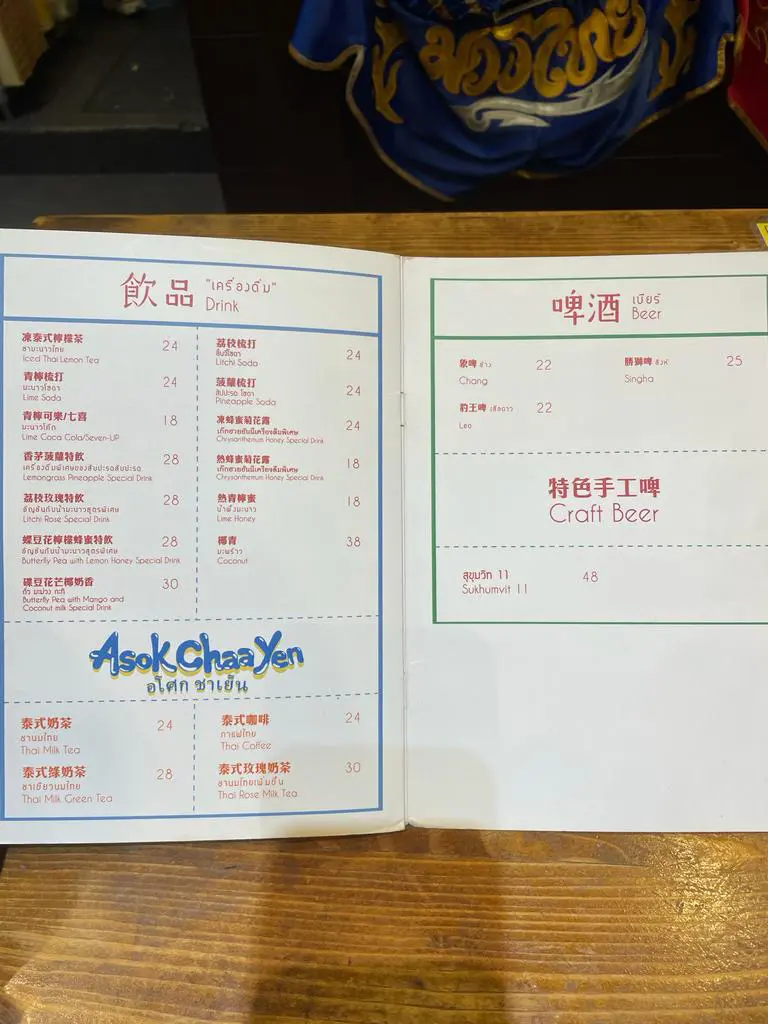 มวยไทย
飲品 "เครื่องดื่ม"
Drink
凍泰式檸檬茶 24
ชามะนาวไทย
Iced Thai Lemon Tea
青檸梳打 24
มะนาวโซดา
Lime Soda
青檸可樂/七喜 18
มะนาวโค้ก
Lime Coca Cola/Seven-UP
香茅菠蘿特飲 28
เครื่องดื่มพิเศษของสับปะรดสับปะรด
Lemongrass Pineapple Special Drink
荔枝玫瑰特飲 28
อัญชันกับน้ำมะนาวสูตรพิเศษ
Litchi Rose Special Drink
蝶豆花檸檬蜂蜜特飲 28
อัญชันกับน้ำมะนาวสูตรพิเศษ
Butterfly Pea with Lemon Honey Special Drink
碟豆花芒椰奶香 30
ถั่ว มะม่วง กะทิ
Butterfly Pea with Mango and
Coconut milk Special Drink
荔枝梳打 24
ลิ้นจี่โซดา
Litchi Soda
菠蘿梳打 24
สับปะรด โซดา
Pineapple Soda
凍蜂蜜菊花露 24
เก๊กฮวยฮันนี่เครื่องดื่มพิเศษ
Chrysanthemum Honey Special Drink
熱蜂蜜菊花露 18
เก๊กฮวยฮันนี่เครื่องดื่มพิเศษ
Chrysanthemum Honey Special Drink
熱青檸蜜 18
น้ำผึ้งมะนาว
Lime Honey
椰青 38
มะพร้าว
Coconut
Asok Chaa Yen
อโศก ชาเย็น
泰式奶茶 24
ชานมไทย
Thai Milk Tea
泰式綠奶茶 28
ชาเขียวนมไทย
Thai Milk Green Tea
泰式咖啡 24
กาแฟไทย
Thai Coffee
泰式玫瑰奶茶 30
ชานมไทยเข้มข้น
Thai Rose Milk Tea
啤酒 เบียร์
Beer
象啤 ช้าง 22
Chang
勝獅啤 สิงห์ 25
Singha
豹王啤 เสือดาว 22
Leo
特色手工啤
Craft Beer
สุขุมวิท 11 48
Sukhumvit 11